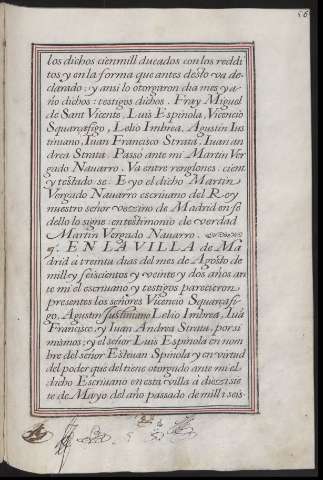 56
los dichos cien mill ducados con los reddi
tos y en la forma que antes desto va de
clarado: y ansi lo otorgaron dia mes y a
ño dichos: testigos dichos. Fray Miguel
de Sant Vicente, Luis Espinola, Vicencio
Squarçafigo, Lelio Imbrea, Agustin Ius
tiniano, Iuan Francisco Strata, Iuan an
drea Strata. Passo ante mi Martin Ver
gado Nauarro. Va entre renglones. cient
y testado se. E yo el dicho Martin
Vergado Nauarro escriuano del Rey
nuestro señor vezzino de Madrid en fe
dello lo signe: en testimonio de verdad
Martin Vergado Nauarro.
EN LA VILLA de Ma
drid a treinta dias del mes de Agosto de
mill y seiscientos y veinte y dos años an
te mi el escriuano y testigos parecieron
presentes los señores Vicencio Squarçafi
go, Agustin Justiniano Lelio Imbrea, Iuã
Francisco, y Iuan Andrea Strata, por si
mismos: y el señor Luis Espinola en nom
bre del señor Esteuan Spinola y en virtud
del poder que del tiene otorgado ante mi el
dicho Escriuano en esta villa a diezisie
te de Mayo del año passado de mill i seis